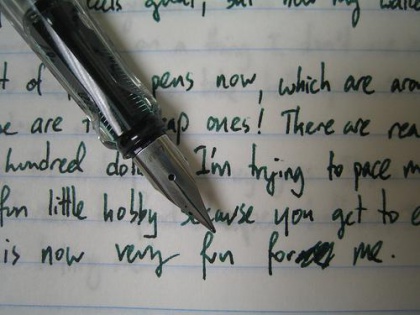 feels good, but now my
t of pens now, which are
se are ap ones! There are
hundred I'm trying to pace
fun little hobby cause you get to
is now very fun for me.